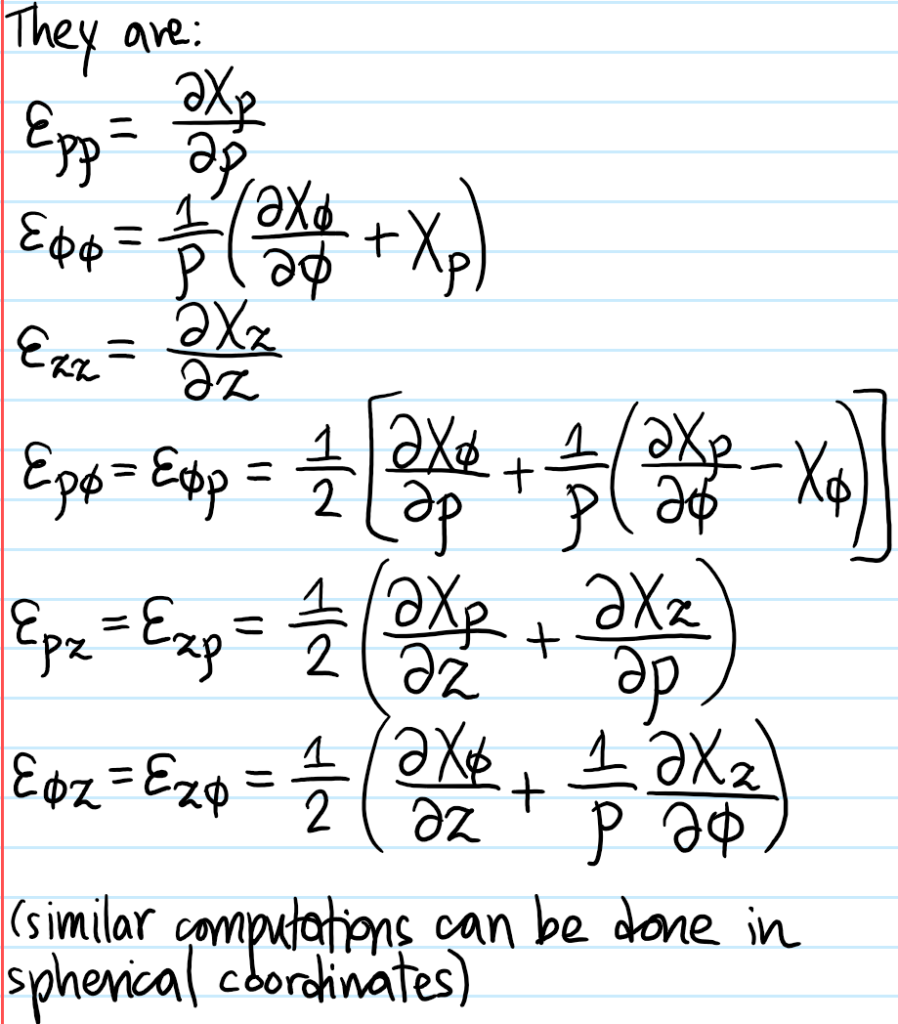 They are:
ε_ρρ = ∂X_ρ/∂ρ
ε_ϕϕ = 1/ρ (∂X_ϕ/∂ϕ + X_ρ)
ε_zz = ∂X_z/∂z
ε_ρϕ = ε_ϕρ = 1/2 [∂X_ϕ/∂ρ + 1/ρ (∂X_ρ/∂ϕ - X_ϕ)]
ε_ρz = ε_zρ = 1/2 (∂X_ρ/∂z + ∂X_z/∂ρ)
ε_ϕz = ε_zϕ = 1/2 (∂X_ϕ/∂z + 1/ρ ∂X_z/∂ϕ)
(similar computations can be done in
spherical coordinates)